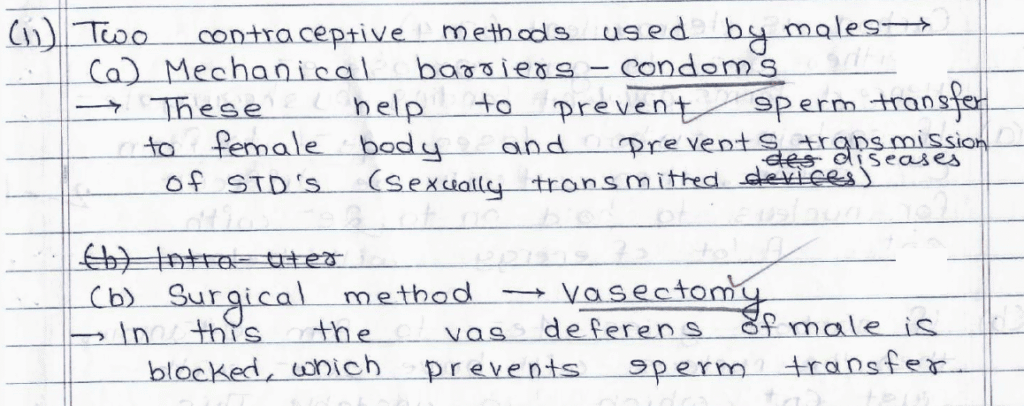 (ii) Two contraceptive methods used by males →
(a) Mechanica barriers - condoms
→ These help to prevent sperm transfer
to female body and prevents transmission
des diseases
of STD's (sexually transmitted devices)
(b) Intra-uter
(b) Surgical method → Vasectomy
→ In this the vas deferens of male is
blocked, which prevents sperm transfer.